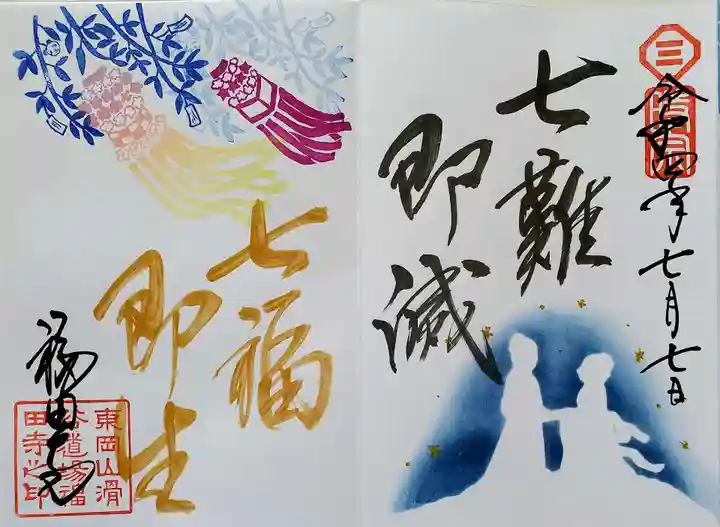 三
令和四年七月七日
七難
即滅
七福
即生
福田寺
東岡山滑
谷道場福
田寺之印